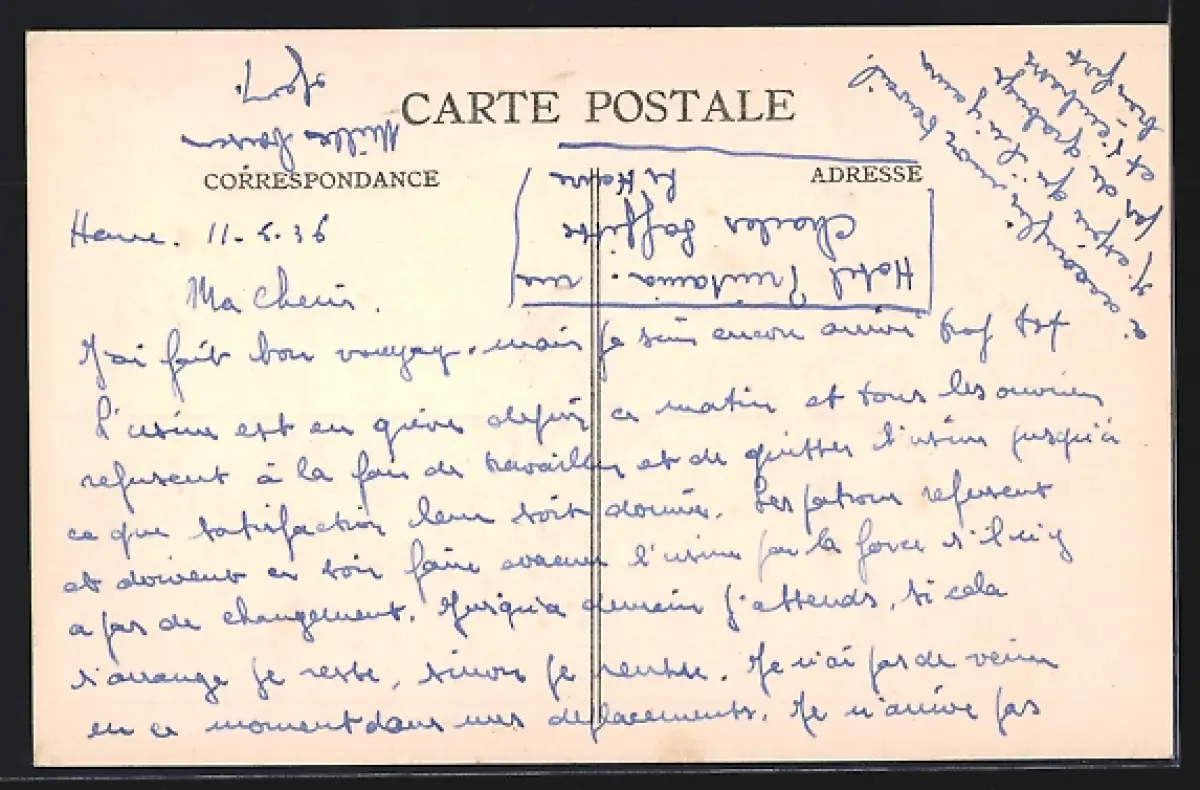 CARTE POSTALE
CORRESPONDANCE
ADRESSE
Havre. 11-6.36
Ma Cherie.
J'ai fait bon voyage, mais je suis encore arrivé trop tot
L'usine est en grève depuis ce matin et tous les ouvriers
refusent à la fois de travailler et de quitter l'usine jusqu'à
ce que satisfaction leur soit donnée. Les patrons refusent
et doivent ce soir faire evacuer l'usine par la force s'il n'y
a pas de changement. Jusqu'a demain j'attends, si cela
s'arrange je reste, sinon je rentre. Je n'ai pas de veine
en ce moment dans mes deplacements. Je n'arrive pas
à accomplir mon travail
J'espère qu'il n'y aura
pas de grabuge
et t'embrasse
bien fort
Mille baisers
Hotel Printania. rue
Charles Laffitte
Le Havre